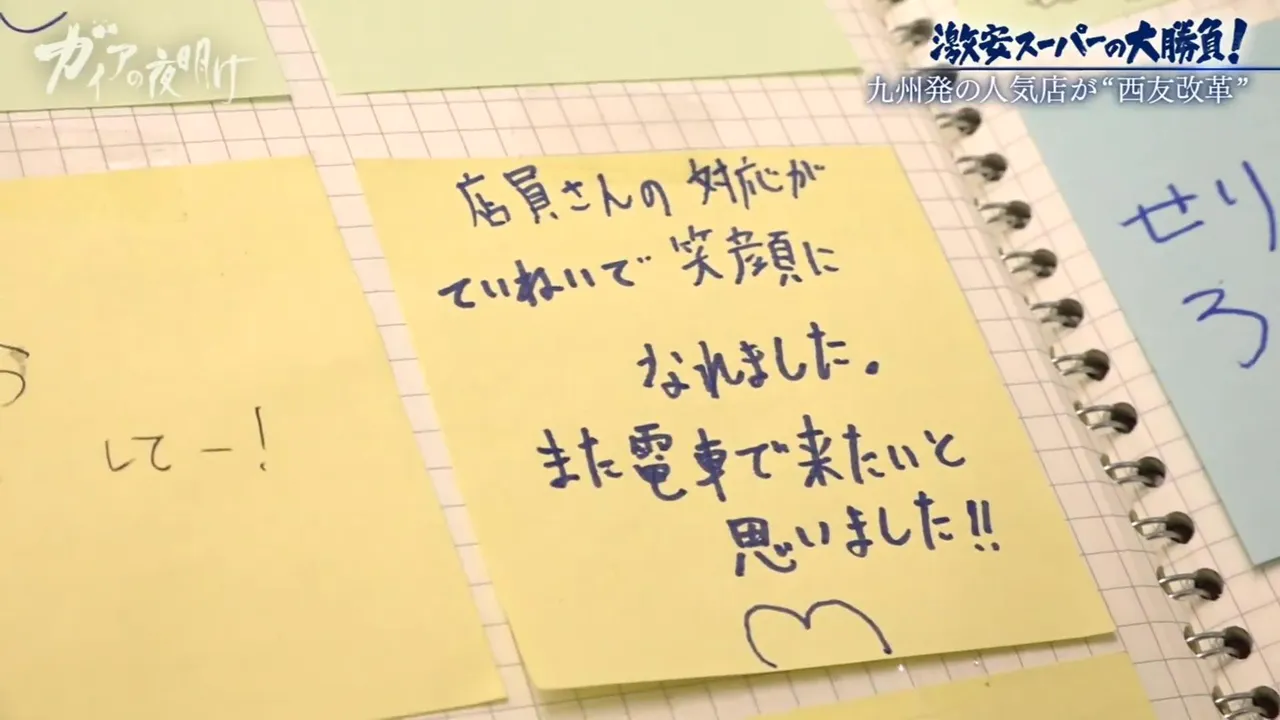 ガイアの夜明け
激安スーパーの大勝負!
九州発の人気店が“西友改革”
店員さんの対応が
ていねいで笑顔に
なれました。
また電車で来たいと
思いました!!
してー!
せり
ろ